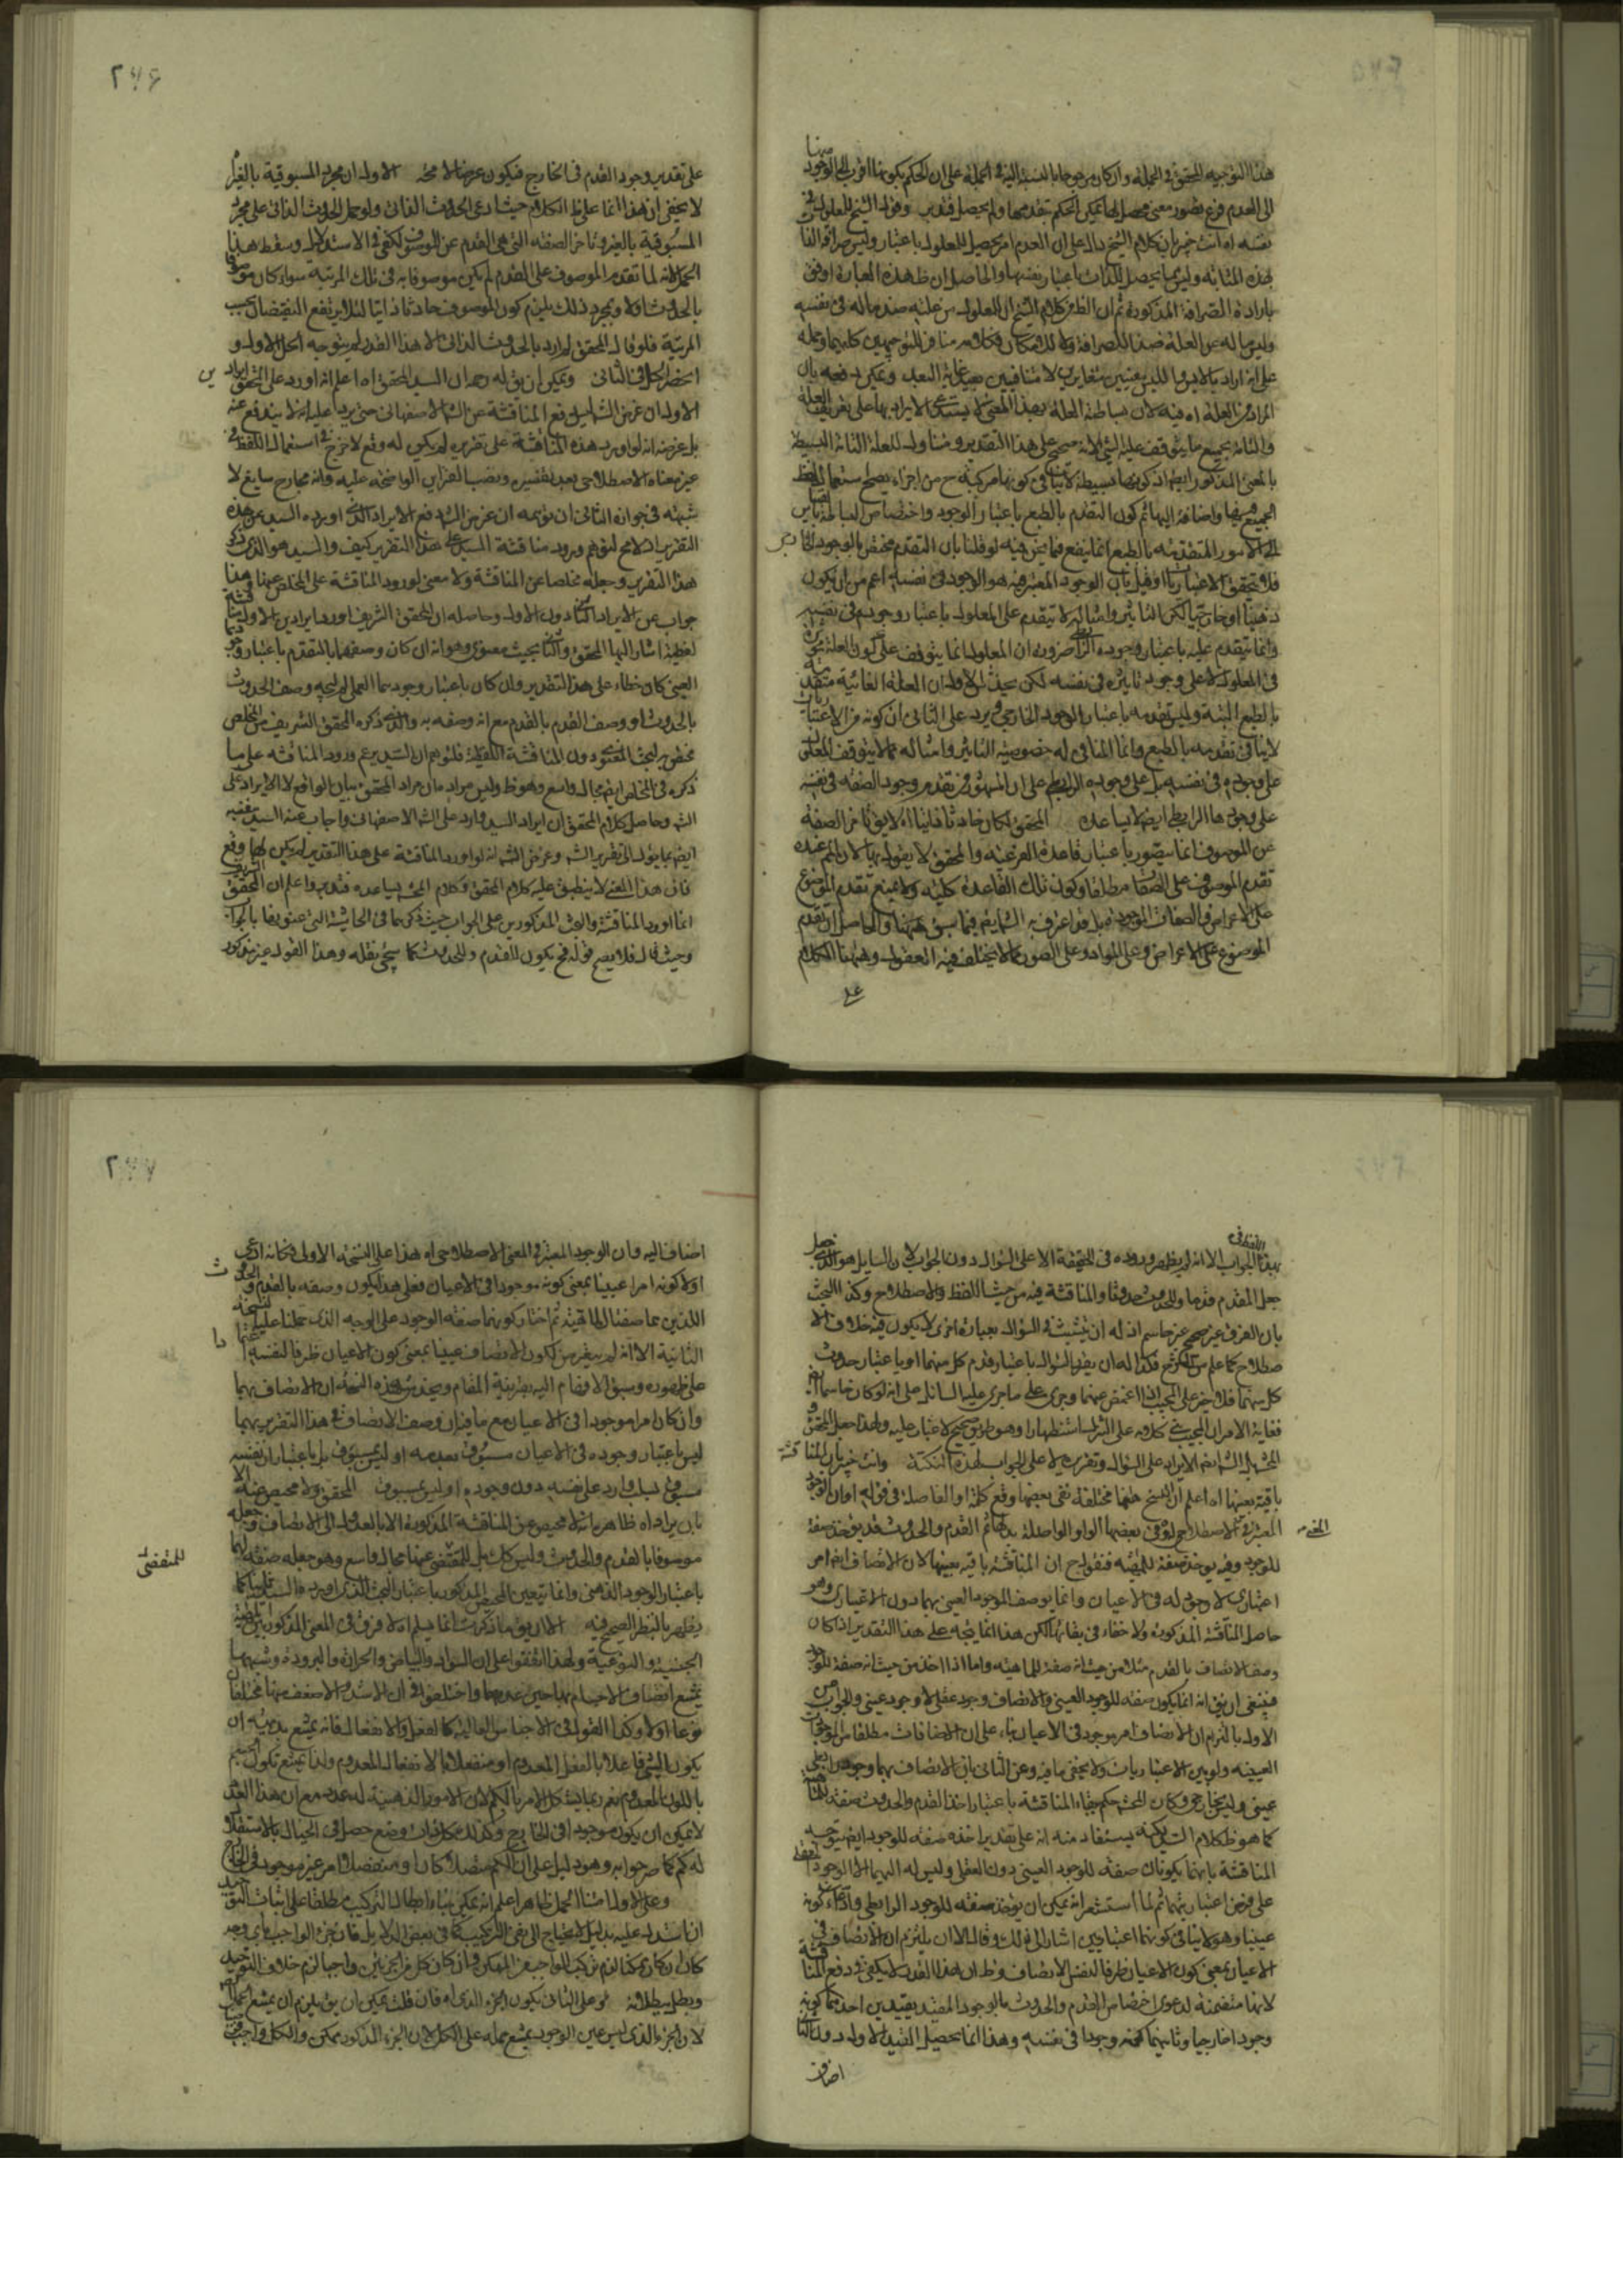 هذا التوجيه للمحقق في الجملة وان كان مرجوحا بالنسبة اليه في الجملة على ان الحكم بكونها اقرب الى الوجود
الى العدم فرع تصور معنى محصل لها يمكن الحكم بقدمها ولم يحصل فتدبر وقول الشيخ للمعلول في
نفسه اه انت خبير بان كلام الشيخ دال على ان العدم امر يحصل للمعلول باعتبار وليس صرافة الذات
بهذه المثابة وليس مما يحصل للذات باعتبار نفسها والحاصل ان ظ هذه العبارة اوفق
بارادة الصرافة المذكورة ثم ان الظ من كلام الشيخ ان للمعلول من علته ضد ما له في نفسه
وليس ما له عن العلة ضد الصرافة ولا لامكان فكلامه مناف للتوجيهين كليهما وحمله
على انه اراد بالايس والليس معنيين متغايرين لا متنافيين بعيد غاية البعد ويمكن دفعه بان
المراد من العلة اه فيه لان بساطة العلة بهذا المعنى لا يستدعي الايراد بها على تعريف العلة
والثانة بجميع ما يتوقف عليه الشي لانه صحيح على هذا التقدير ومتناول للعلة التامة البسيطة
بالمعنى المذكور ايضا اذ كونها بسيطة لا ينافي كونها مركبة ح من اجزاء يصح استعمال لفظ
الجميع فيها واضافة اليها ثم كون التقدم بالطبع باعتبار الوجود واختصاص البساطة بما ليس
له الامور المتقدمة بالطبع انما ينفع فيما نحن فيه لو قلنا بان التقدم مختص بالوجود الخارجي
فلو تحقق الاعتباريات او قيل بان الوجود المعتبر فيه هو الوجود في نفسه اعم من ان يكون
ذهنيا او خارجيا لكن التاثير وامثاله لا يتقدم على المعلول باعتبار وجودهم في نفسه
وانما يتقدم عليه باعتبار وجوده الرابطي ضرورة ان المعلول انما يتوقف على كون العلة مؤثرة
في المعلول لا على وجود تاثيره في نفسه لكن يخدش الاول ان العلة الغائية متقدمة
بالطبع البتة وليس تقدمه باعتبار الوجود الخارجي ويرد على الثاني ان كونه من الاعتباريات
لا ينافي تقدمه بالطبع وانما المنافي له خصوصية التاثير وامثاله مما لا يتوقف المعلول
على وجوده في نفسه بل على وجوده الرابطي على ان المشهور تقدم وجود الصفة في نفسه
على وجودها الرابطي ايضا لا يساعده المحقق لكان حادثا ذاتيا اه لا يق تاخر الصفة
عن الموصوف انما يتصور باعتبار قاعدة الفرعية والمحقق لا يقول بها لان الثم عنده
تقدم الموصوف على الصفات مطلقا وكون تلك القاعدة كلية ولا يمنع تقدم الموضوع
على الاعراض والصفات الموجودة بل قد اعترف به الش ايضا فيما سبق ههنا والحاصل ان تقدم
الموضوع على الاعراض وعلى المواد وعلى الصور مما لا يختلف فيه العقول وههنا الكلام
على
على تقدير وجود القدم في الخارج فيكون عرضا لا محة الاول ان مجرد المسبوقية بالغير
لا يخفى ان هذا انما على ظ الكلام حيث ادعى الحدوث الذاتي ولو حمل الحدوث الذاتي على مجرد
المسبوقية بالغير وتاخر الصفة التي هي القدم عن الموصوف لكفى في الاستدلال وسقط هذا
الحل لانه لما تقدم الموصوف على القدم لم يكن موصوفا به في تلك المرتبة سواء كان موصوفا
بالحدوث اولا وبمجرد ذلك يلزم كون الموصوف حادثا ذاتيا لئلا يرتفع النقيضان بحسب
المرتبة فلو قال المحقق لم ارد بالحدوث الذاتي الا هذا القدر لم يتوجه الحل الاول و
انحصر الحل في الثاني ويمكن ان يق له رحمه ان السيد المحقق اه اعلم انه اورد على المحقق ايراد ين
الاول ان غرض الش ليس دفع المناقشة عن الش الاصفهاني حتى يرد عليه انه لا يندفع عنه
بل غرضه انه لو اورد هذه المناقشة على تقرير لم يكن له وقع لا حرج في استعمال اللفظ في
غير معناه الاصطلاحي بعد تفسيره ونصب القراين الواضحة عليه وانه مجاز سايغ لا
شبهة في جوازه الثاني ان توهمه ان غرض الش دفع الايراد الذي اورده السيد عن هذه
التقرير
هذا التقرير وجعله مخلصا عن المناقشة ولا معنى لورود المناقشة على المخلص عنها وهذا
جواب عن الايراد الثاني دون الاول وحاصله ان المحقق الشريف اورد ايرادين الاول مناقشة
لفظية اشار اليها المحقق والثاني بحث معنوي وهو انه ان كان وصفهما بالتقدم باعتبار وجودهما
العيني كان خطاء على هذا التقدير وان كان باعتبار وجودهما العقلي لم يتجه وصف الحدوث
بالحدوث او وصف القدم بالقدم مع انه وصفه به والذي ذكره المحقق الشريف من المخلص
مختص بالبحث المعنوي دون المناقشة اللفظية فلتوهم ان السيد يزعم ورود المناقشة على ما
ذكره في المخلص ايضا مجال واسع وهو ظ وليس مراده ان مراد المحقق بيان الواقع لا الايراد على
الش وحاصل كلام المحقق ان ايراد السيد وارد على الش الاصفهاني واجاب عنه السيد بنفسه
ايضا بما يؤل الى تقرير الش وغرض الش انه لو اورد المناقشة على هذا التقدير لم يكن لها وقع
فان هذا المعنى لا ينطبق عليه كلام المحقق وكلام المحشي لا يساعده فتدبر واعلم ان المحقق الشريف
انما اورد المناقشة والبحث المذكورين على الجواب حيث ذكرهما في الحاشية التي عنونها بالجواب
وحيث قال فلا يصح قوله فح يكون للقدم وللحدوث كما سيجئ نقله وهذا القول غير مذكور
بهذا الجواب الا انه لم يظهر وروده في الحقيقة الا على السؤال دون الجواب لان السايل هو الذي جعل
جعل المقدم قدما وللحدوث حدوثا والمناقشة فيه من حيث اللفظ والاصطلاح وكذا البحث
بان الفرق غير صحيح غير حاسم اذ له ان يتشبث في السؤال بعبارة اخرى لا يكون فيه خلاف الا
صطلاح كما علم من كلام الش فكذا له ان يقرر السؤال باعتبار قدم كل منهما او باعتبار حدوث
كل منهما فلا خير على المجيب ان اغمض عنهما وجرى على ما جرى عليه السائل على انه لو كان حاسما ايضا
فغاية الامر ان المجيب بنى كلامه على التنزل استظهارا وهو طريق صحيح لا غبار عليه ولهذا جعل المحقق
الشريف الش ايضا الايراد على السؤال وتقريره لا على الجواب لهذه النكتة وانت خبير بان المناقشة
باقية بعينها اه اعلم ان النسخ ههنا مختلفة ففي بعضها وقع كلمة او الفاصلة في قوله اوان الوجود
المعتبر في الاصطلاح وفي بعضها الواو الواصلة بدلها ثم القدم والحدوث قد يؤخذ صفة
للوجود وقد يؤخذ صفة للمهية فنقول ح ان المناقشة باقية بعينها لان الاتصاف ايضا امر
اعتباري لا وجود له في الاعيان وانما يوصف الموجود العيني بهما دون الاعتباري وهو
حاصل المناقشة المذكورة ولا خفاء في بقائها لكن هذا انما يتجه على هذا التقدير اذا كان
وصف الاتصاف بالقدم مثلا من حيث انه صفة للماهية واما اذا اخذ من حيث انه صفة للوجود
فينبغي ان يق انه انما يكون صفة للوجود العيني والاتصاف وجود عقلي لا وجود عيني والجواب عن
الاول بالتزام ان الاتصاف امر موجود في الاعيان بناء على ان الاضافات مطلقا من الموجودات
العينية ولو بين الاعتباريات ولا يخفى ما فيه وعن الثاني بان الاتصاف بهما وجود رابطي
عيني وليس بخارجي وكان المحشي حكم ببقاء المناقشة باعتبار اخذ القدم والحدوث صفة للماهية
كما هو ظ كلام السيد لكنه يستفاد منه انه على تقدير اخذه صفة للوجود ايضا يتوجه
المناقشة بانهما يكونان صفة للوجود العيني دون العقلي وليس له اليهما الا الوجود العقلي
على فرض اعتباريتهما ثم لما استشعر انه يمكن ان يؤخذ صفة للوجود الرابطي وادعاء كونه
عينيا وهو لا ينافي كونهما اعتباريين اشار الى ذلك وقال الا ان يلتزم ان الاتصاف في
الاعيان بمعنى كون الاعيان ظرفا لنفس الاتصاف وظ ان هذا القدر لا يكفي في دفع المناقشة
لانها متضمنة لدعوى اختصاص القدم والحدوث بالوجود المقيد بقيدين احدهما كونه
وجودا خارجيا وثانيهما كونه وجودا في نفسه وهذا انما يحصل القيد الاول دون الثاني
اضاف
اضاف اليه وان الوجود المعتبر في المعنى الاصطلاحي اه هذا على النسخة الاولى فكانه ادعى
اولا كونه امرا عينيا بمعنى كونه موجودا في الاعيان فعلى هذا يكون وصفه بالقدم والحدوث
اللذين هما صفتا الماهية ثم اختار كونهما صفة الوجود على الوجه الذي حملنا عليه النسخة
الثانية الا انه لم يتعرض لكون الاتصاف عينيا بمعنى كون الاعيان ظرفا لنفسه اعتمادا
على ظهوره وسبق الافهام اليه بقرينة المقام ويخدش هذه النسخة ان الاتصاف بهما
وان كان امرا موجودا في الاعيان مع ما فيه ان وصف الاتصاف في هذا التقرير بهما
ليس باعتبار وجوده في الاعيان مسبوق بعدمه او ليس بمسبوق بل باعتبار ان نفسه
مسبوق بسلب وارد على نفسه دون وجوده او ليس بمسبوق المحقق ولا محيص عنه الا
بان يراد اه ظاهر انه لا محيص عن المناقشة المذكورة الا بالعدول الى الاتصاف وجعله
موصوفا بالقدم والحدوث وليس كك بل للمتفصي عنها مجال واسع وهو جعله صفة لهما
باعتبار الوجود الذهني وانما يتعين المحيص المذكور باعتبار البحث الذي اورده السيد ثانيا كما
يظهر بالنظر الصحيح فيه الا ان يق ما ذكرت انما يسلم اه لا فرق في المعنى المذكور بين
الجنسية والنوعية ولهذا اتفقوا على ان السواد والبياض والحرارة والبرودة وشبههما
يمتنع اتصاف الاجسام بها حين عدمها واختلفوا في ان الاشد والاضعف منها مختلفان
نوعا اولا وكذا القول في الاجناس العالية كالفعل والانفعال فانه يمتنع بديهة ان
يكون الشئ فاعلا بالفعل المعدوم او منفعلا بالانفعال المعدوم ولذا يمتنع تكون الجسم
باللون المعدوم نعم ربما
لا يمكن ان يكون موجودا في الخارج وكذلك
له كم كما صرحوا به وهو دليل على ان الكم متصلا كان او منفصلا امر غير موجود في الخارج
وعلى الاول امتنا الحمل ظاهرا اعلم انه يمكن بناء ابطال التركيب مطلقا على اثبات التوحيد
ان استدل عليه بدليل لا يحتاج الى نفي التركيب كما في بعض الدلايل فان جزء الواجب باي وجه
كان ان كان ممكنا لزم تركب الواجب من الممكن وان كان كل من الجزئين واجبا لزم خلاف التوحيد
وبطل ببطلانه وعلى الثاني يكون الجزء الذي اه فان قلت يمكن ان يق يلزم ان يمتنع الحمل
لان الجزء الذي ليس عين الوجود يمتنع حمله على الكل لان الجزء المذكور ممكن والكل واجب
للمتفصي
٢٧٦
٢٧٧